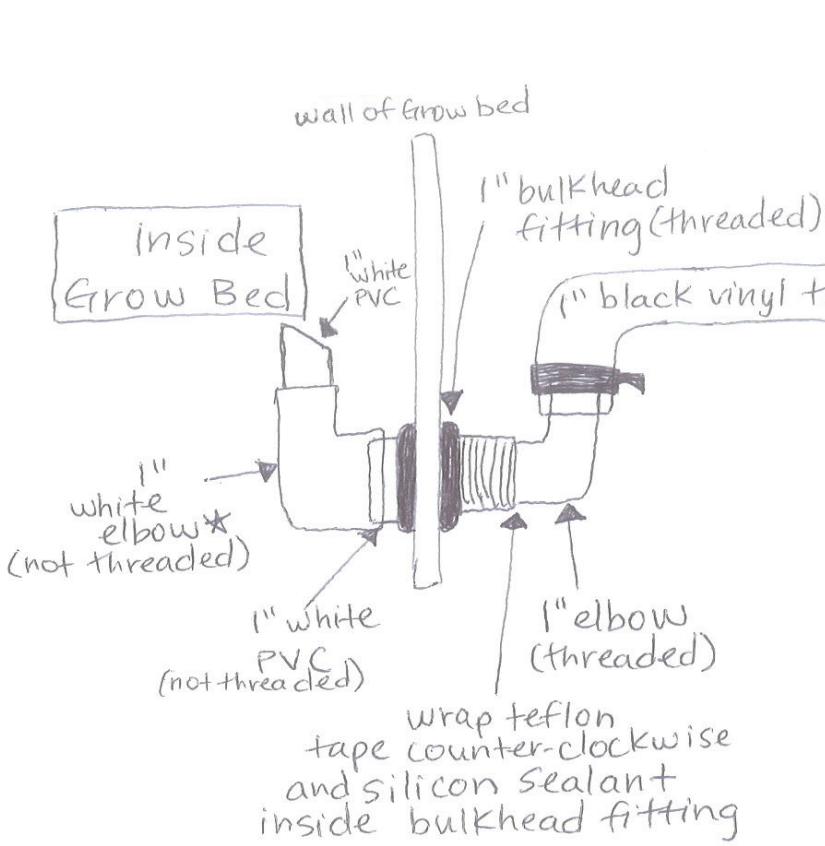 wall of Grow bed
1" bulkhead
fitting (threaded)
inside
Grow Bed
1"
white
PVC
1" black vinyl t
1"
white
elbow*
(not threaded)
1" white
PVC
(not threaded)
1" elbow
(threaded)
wrap teflon
tape counter-clockwise
and silicon sealant
inside bulkhead fitting